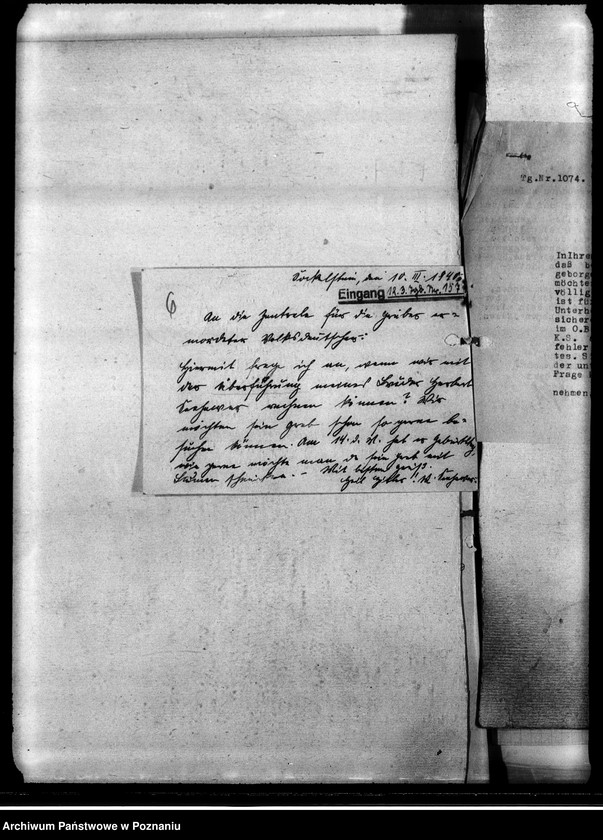 6
den 10. III. 1940.
Eingang 12.3. Tgb. Nr. 157
An die Zentrale für die Gräber er-
mordeter Volksdeutscher.
Hiermit frage ich an, wann wir mit
der Überführung meines Bruders Herbert
rechnen können? Wir
möchten sein Grab schon so gerne be-
suchen können. Am 14. d. M. hat er Geburtstag,
wie gerne möchte man da sein Grab mit
Blumen schmücken. – Mit bestem Gruß.
Heil Hitler!
Tg.Nr.1074.
InIhre
daß b
geborge
möchte
völlig
ist fü
Unterh
sicher
im O.B
K.S.
fehler
tes. S
der un
Frage
nehmen.
Archiwum Państwowe w Poznaniu